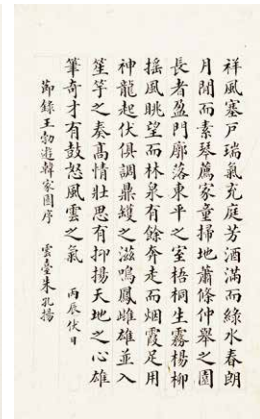 祥風塞戶瑞氣充庭芳酒滿而綠水春朗
月閒而素琴薦家童掃地蕭條仲舉之園
長者盈門廓落東平之室梧桐生霧楊柳
搖風眺望而林泉有餘奔走而烟霞足用
神龍起伏俱調鼎鑊之滋鳴鳳雌雄並入
笙竽之奏高情壯思有抑揚天地之心雄
筆奇才有鼓怒風雲之氣
丙辰伏日
節錄王勃遊韓家園序
雲臺朱孔揚